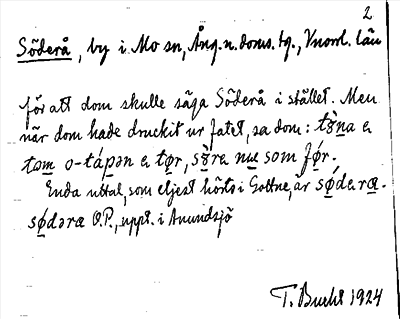 2
Söderå, by i Mo sn, Ång. n. doms. tg., Vnorrl. län
för att dom skulle säga Söderå i stället. Men
när dom hade druckit ur fatet, sa dom: tø̀na e
tøm o-tápən e tør, sø̀ra nu som før.
Enda uttal, som eljest hörts i Gottne, är sǿdəra.
sǿdəra O.P., uppt. i Anundsjö
T. Bucht 1924